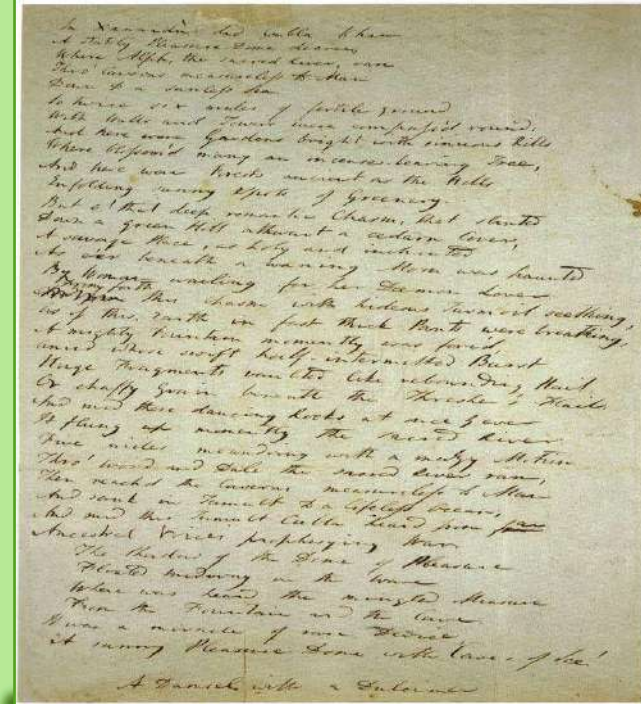 In Xannadù did Cubla Khan
A stately Pleasure Dome decree;
Where Alph, the sacred River, ran
Thro' Caverns measureless to Man
Down to a sunless Sea.
So twice six miles of fertile ground
With Walls and Towers were compass'd round:
And here were Gardens bright with sinuous Rills
Where blossom'd many an incense-bearing Tree,
And here were Forests ancient as the Hills
Enfolding sunny Spots of Greenery.
But o! that deep romantic Chasm, that slanted
Down a green Hill athwart a cedarn Cover,
A savage Place, as holy and inchanted
As e'er beneath a waning Moon was haunted
By Woman wailing for her Daemon Lover
From forth this Chasm with hideous Turmoil seething,
As if this Earth in fast thick Pants were breathing,
A mighty Fountain momently was forc'd
Amid whose swift half-intermitted Burst
Huge Fragments vaulted like rebounding Hail
Or chaffy Grain beneath the Thresher's Flail
And mid these dancing Rocks at once & ever
It flung up momently the sacred River
Five miles meandring with a mazy Motion
Thro' Wood and Dale the sacred River ran,
Then reach'd the Caverns measureless to Man
And sank in Tumult to a lifeless Ocean;
And mid this Tumult Cubla heard from
Ancestral Voices prophesying War.
The Shadow of the Dome of Pleasure
Floated midway on the Wave
Where was heard the mingled Measure
From the Fountain and the Cave.
It was a miracle of rare Device,
A sunny Pleasure Dome with Caves of Ice!
A Damsel with a Dulcimer